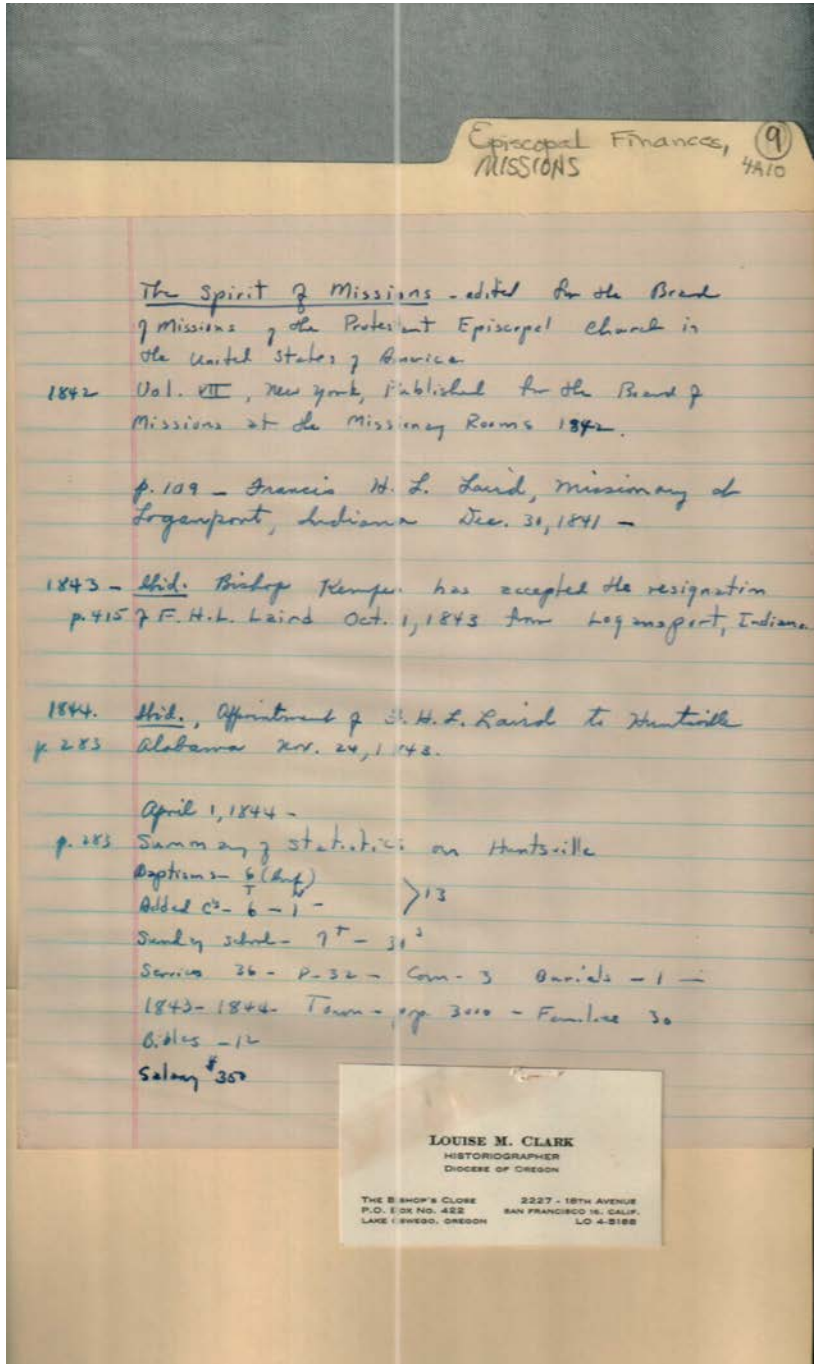 Episcopal Finances, 9
MISSIONS 4A10
The Spirit of Missions - edited for the Board
of Missions of the Protestant Episcopal Church in
the United States of America
1842 Vol. VII, New York, Published for the Board of
Missions at the Missionary Rooms 1842.
p. 109 - Francis H. L. Laird, Missionary at
Logansport, Indiana Dec. 30, 1841 -
1843 - Ibid. Bishop Kemper has accepted the resignation
p. 415 of F. H. L. Laird Oct. 1, 1843 from Logansport, Indiana
1844. Ibid., Appointment of F. H. L. Laird to Huntsville
p. 283 Alabama Nov. 24, 1843.
April 1, 1844 -
p. 283 Summary of statistics on Huntsville
Baptisms - 6 (Inf)
T
Added Cs - 6 - 1 - >13
Sunday School - 7T - 31s
Services 36 - P - 32 - Com - 3 Burials - 1 -
1843 - 1844 - Town - pop. 3000 - Families 30
Bibles - 12
Salary $350
LOUISE M. CLARK
HISTORIOGRAPHER
DIOCESE OF OREGON
THE BISHOP'S CLOSE 2227 - 18TH AVENUE
P.O. BOX NO. 422 SAN FRANCISCO 16, CALIF.
LAKE OSWEGO, OREGON LO 4-5188